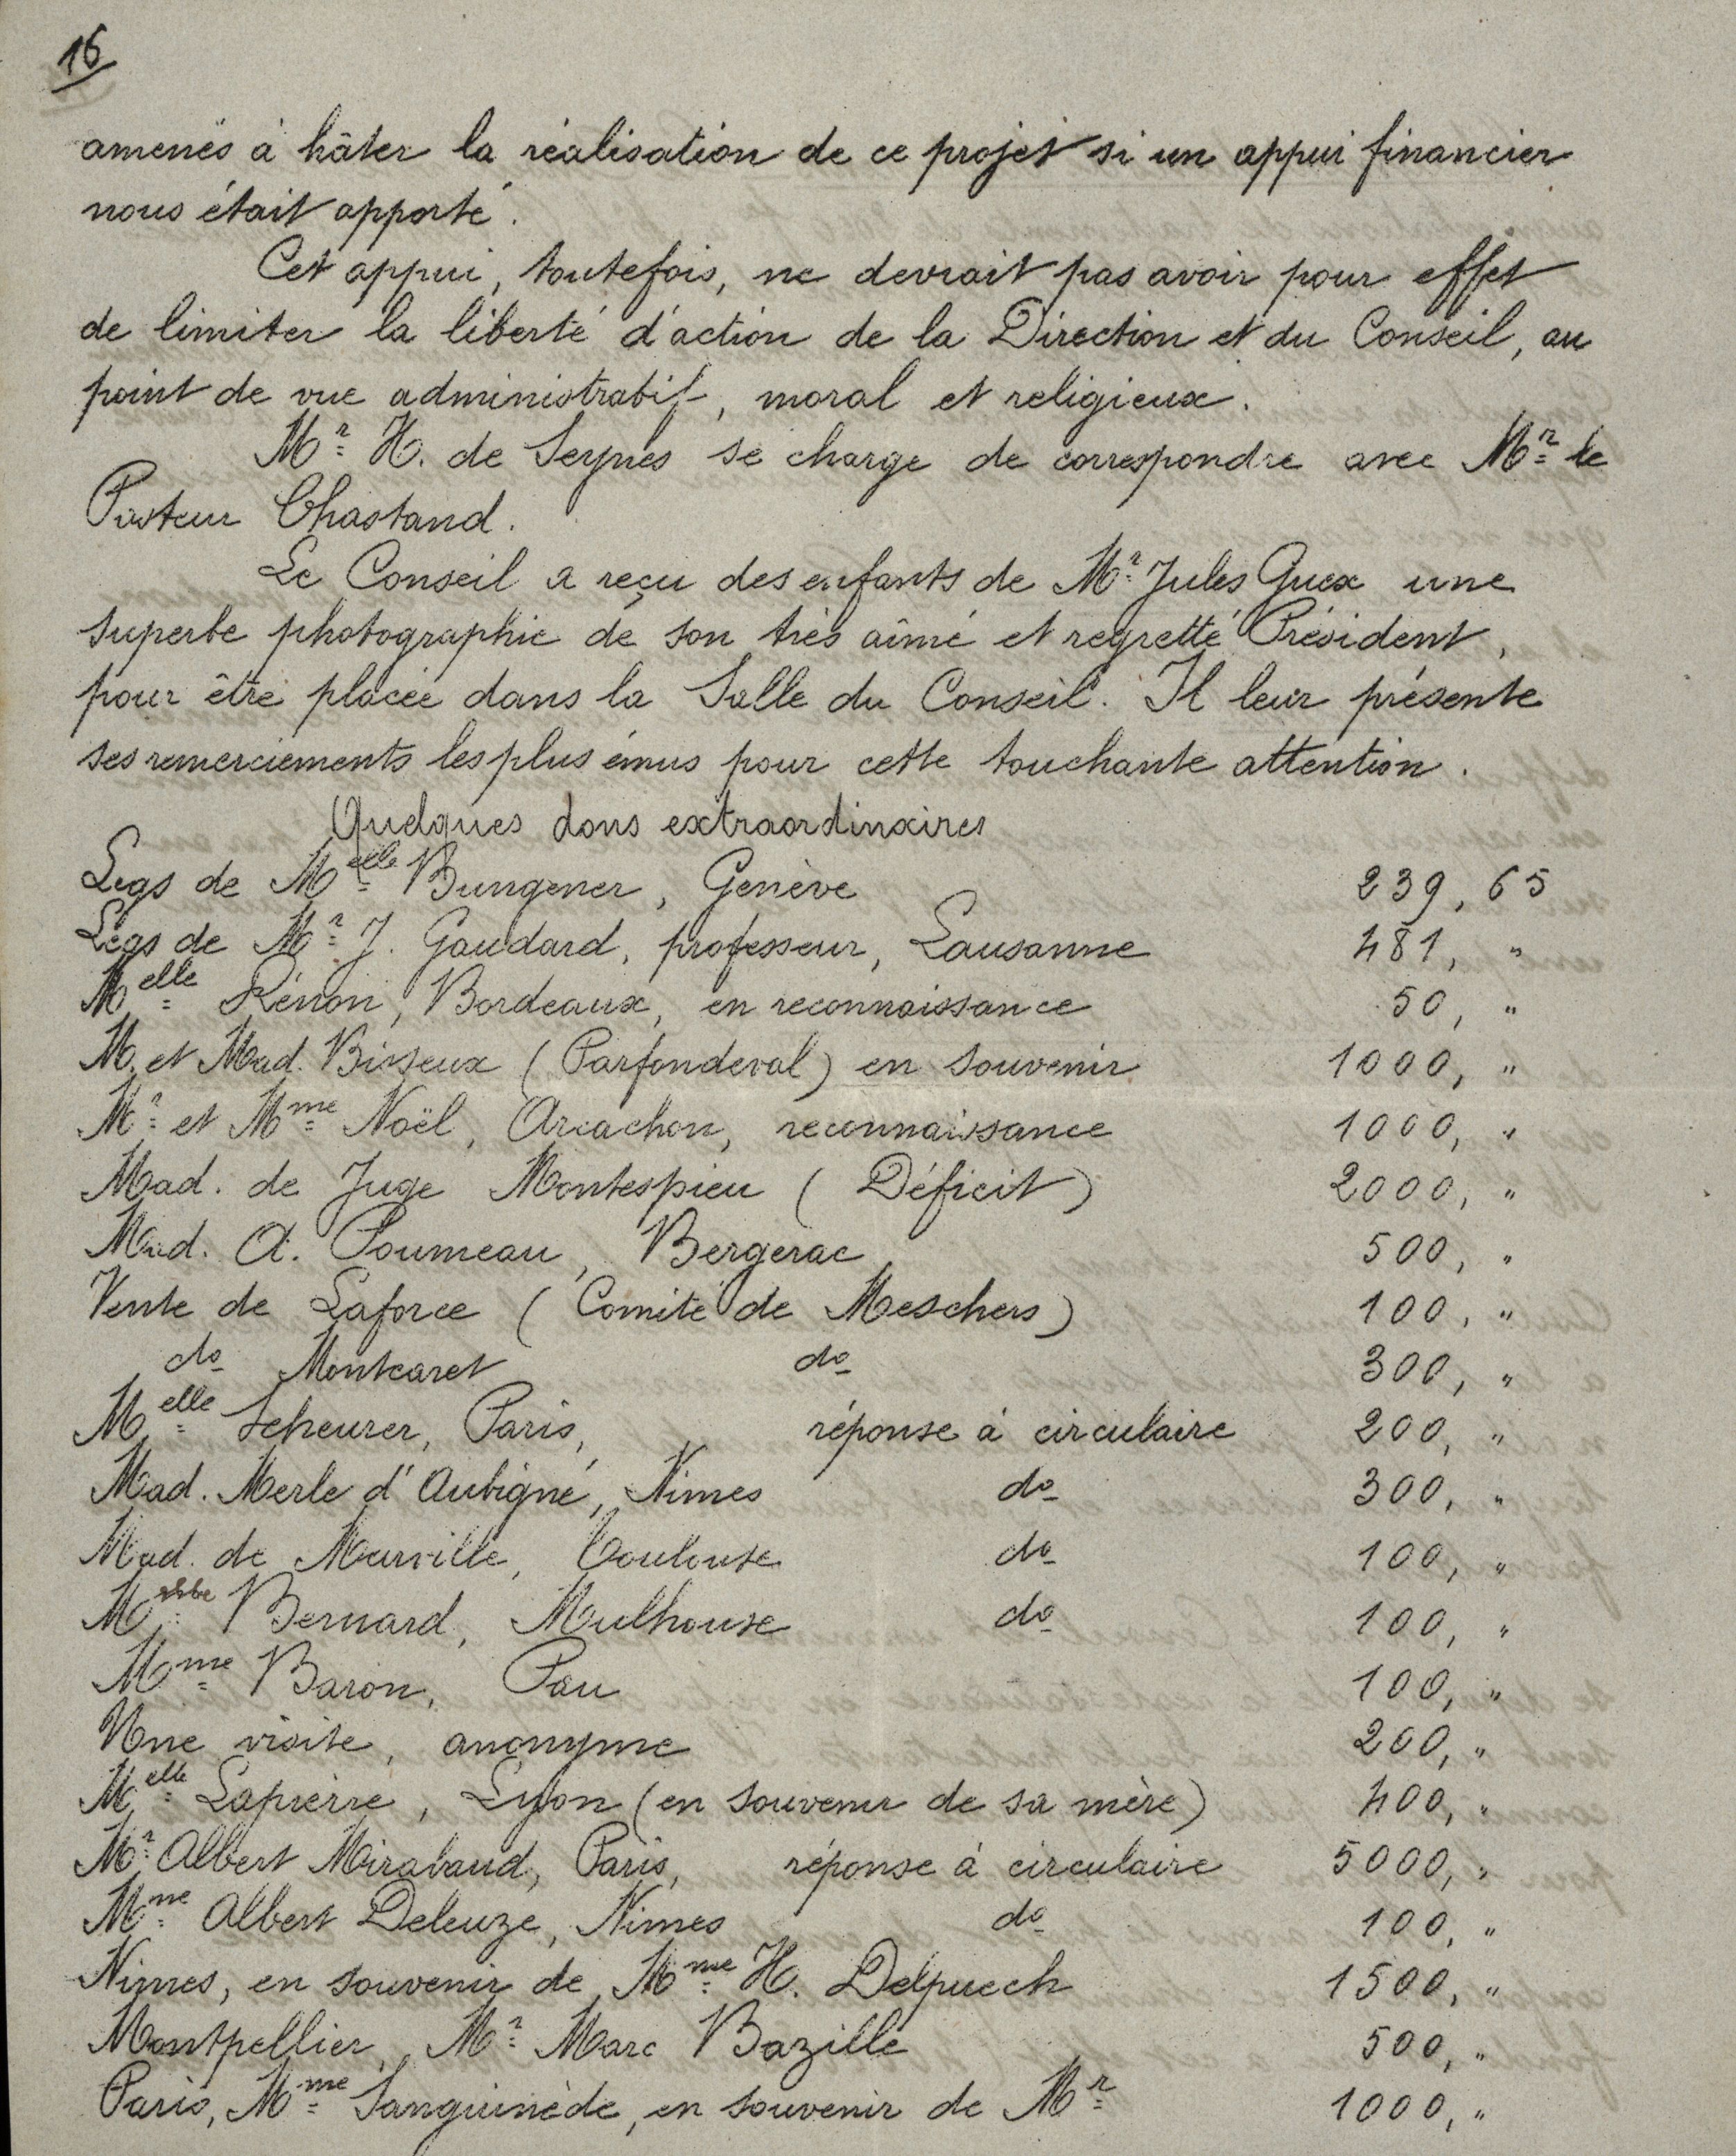 16
amenés à hâter la réalisation de ce projet si un appui financier
nous était apporté.
Cet appui, toutefois, ne devrait pas avoir pour effet
de limiter la liberté d'action de la Direction et du Conseil, au
point de vue administratif, moral et religieux.
Mr H. de Seynes se charge de correspondre avec Mr le
Pasteur Chastand.
Le Conseil a reçu des enfants de Mr Jules Guex une
superbe photographie de son très aîmé et regretté Président,
pour être placée dans la Salle du Conseil. Il leur présente
ses remerciements les plus émus pour cette touchante attention.
Quelques dons extraordinaires
Legs de Melle Bungener, Genève 239,65
Legs de Mr J. Gaudard, professeur, Lausanne 481, "
Melle Rénon, Bordeaux, en reconnaissance 50, "
M. et Mad. Bisseux (Parfondeval) en souvenir 1000, "
Mr et Mme Noël, Arcachon, reconnaissance 1000, "
Mad. de Juge Montespieu (Déficit) 2000, "
Mad. A. Poumeau, Bergerac 500, "
Vente de Laforce (Comité de Meschers) 100, "
do Montcaret do 300, "
Melle Scheurer, Paris, réponse à circulaire 200, "
Mad. Merle d'Aubigné, Nimes do 300, "
Mad. de Marville, Toulouse do 100, "
Bernard, Mulhouse do 100, "
Mme Baron, Pau 100, "
Une visite, anonyme 200, "
Melle Lapierre, Lyon (en souvenir de sa mère) 400, "
Mr Albert Mirabaud, Paris, réponse à circulaire 5000, "
Mme Albert Deleuze, Nimes do 100, "
Nimes, en souvenir de Mme H. Delpuech 1500, "
Montpellier, Mr Marc Bazille 500, "
Paris, Mme Sanguinède, en souvenir de Mr 1000, "